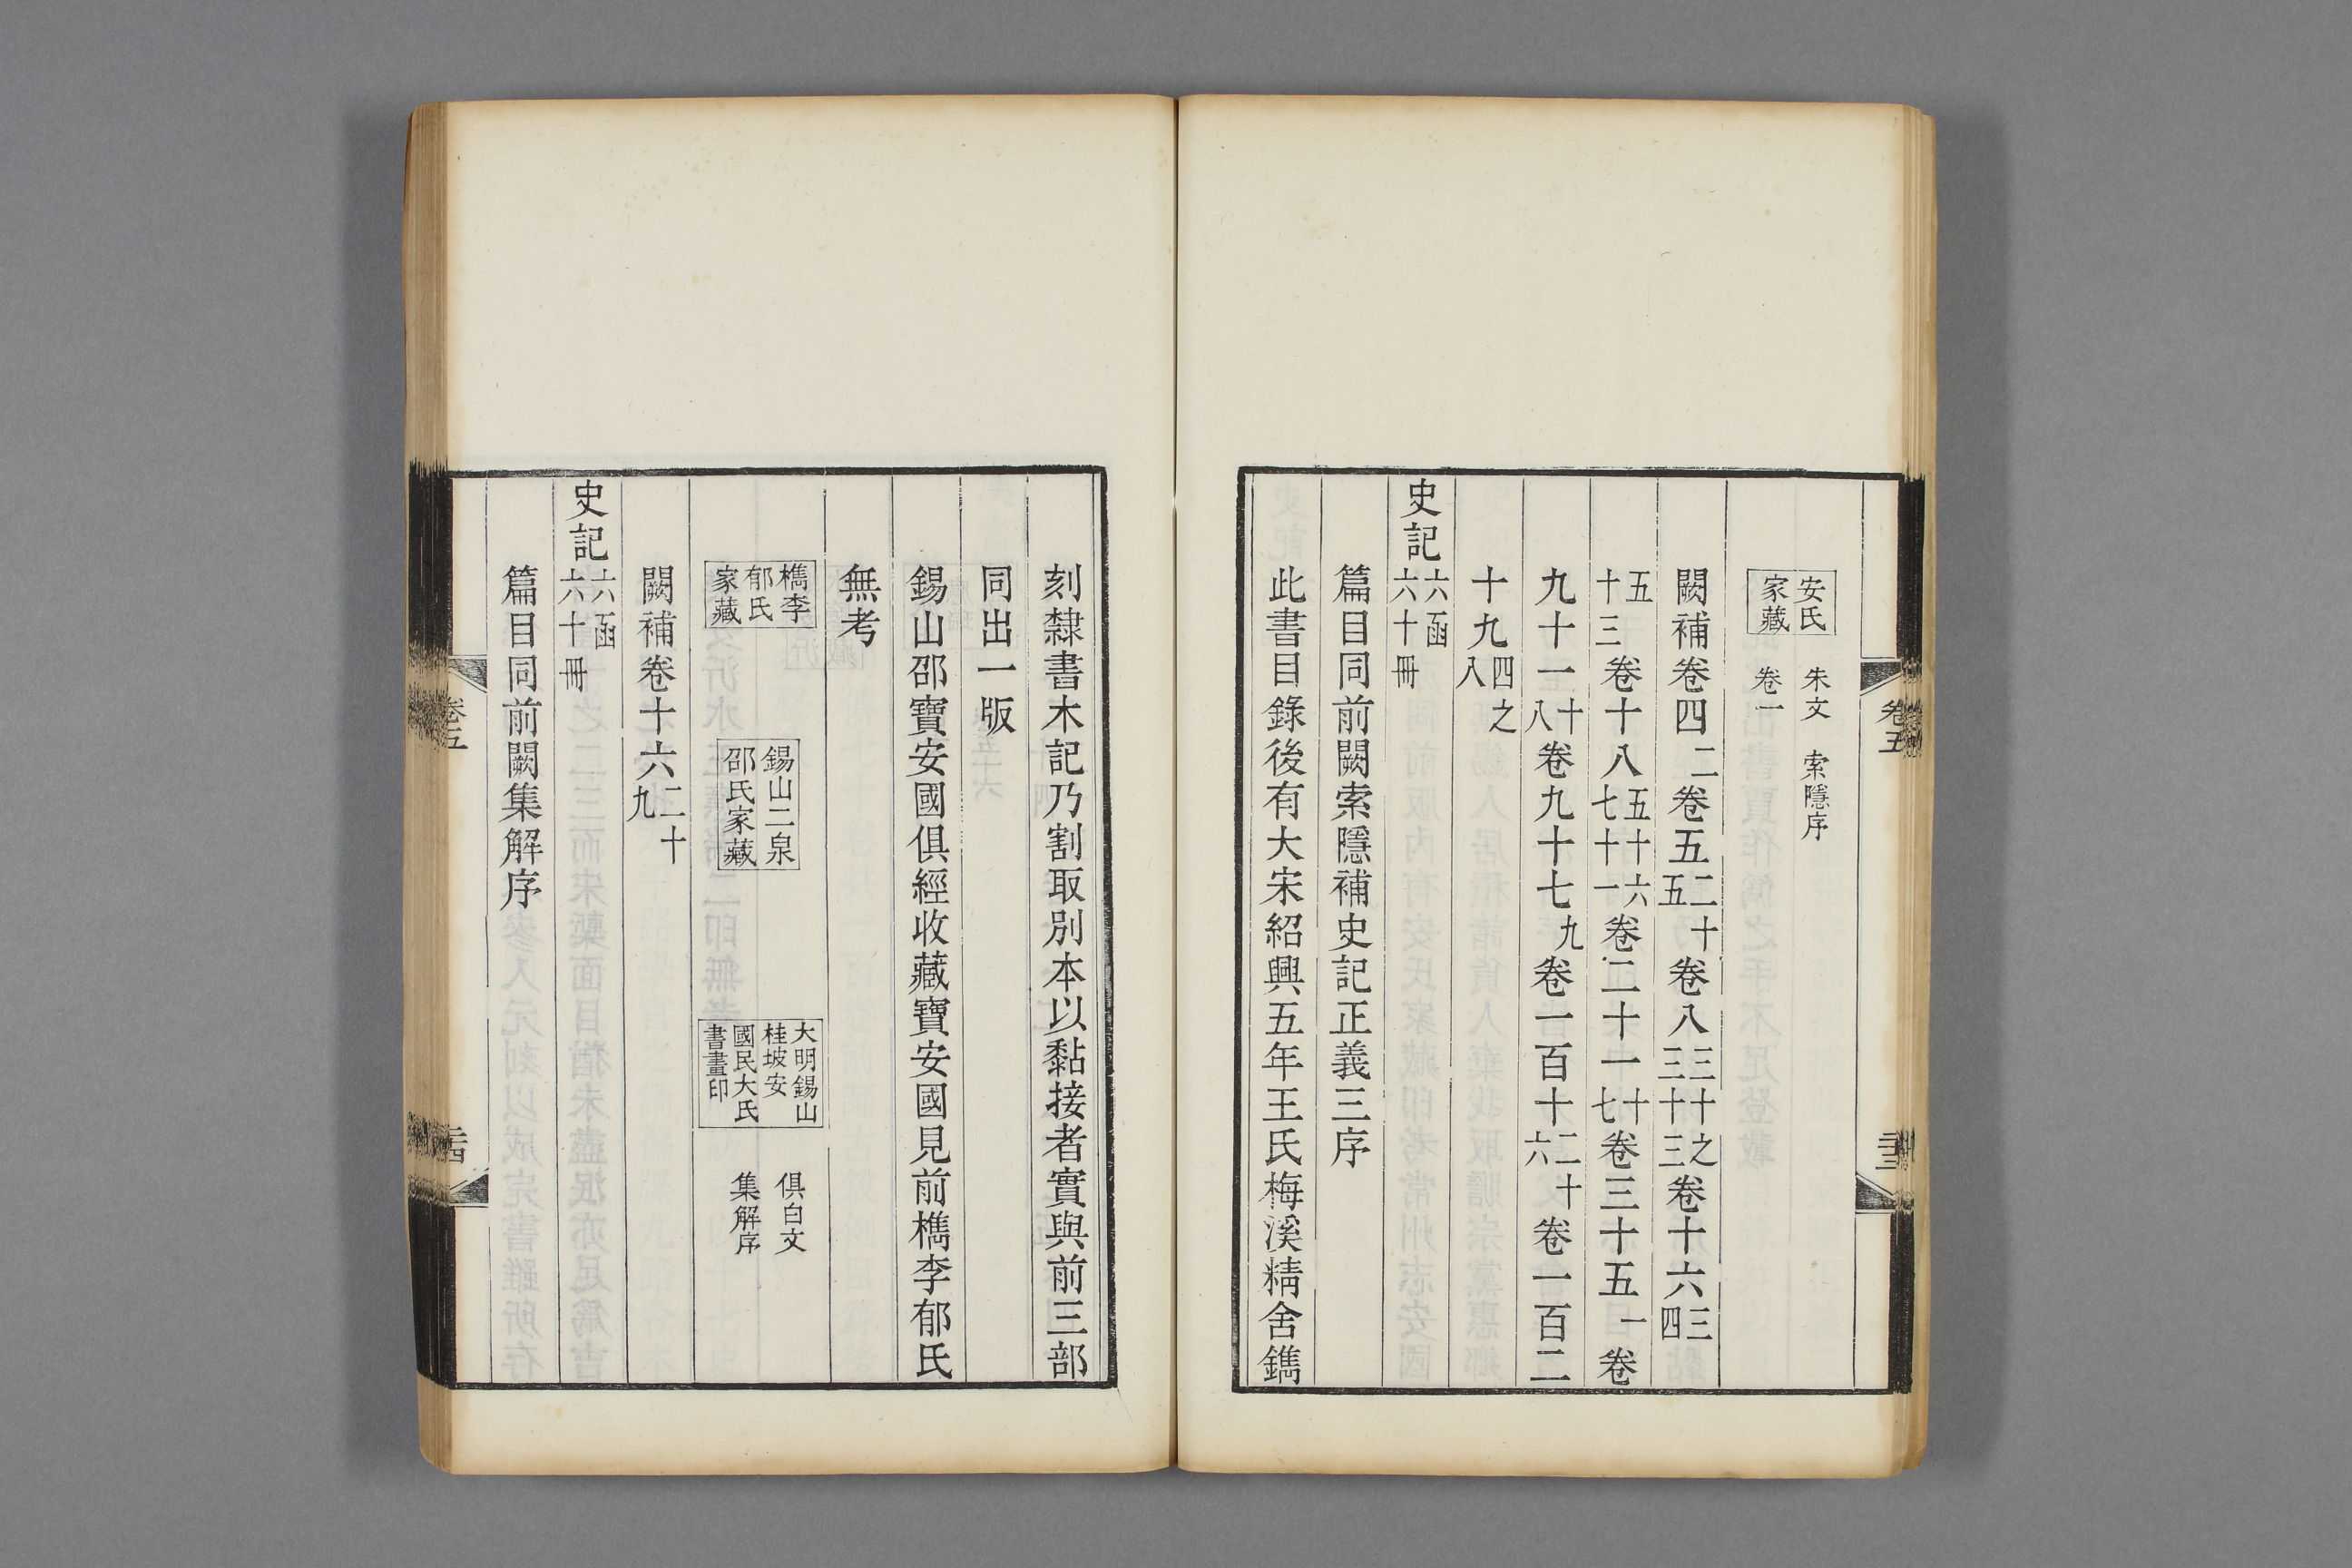 卷五
安氏家藏 朱文 索隱序 卷一
闕補卷四二卷五二十五卷八三十之三十三卷十六三四
五十三卷十八五十六七十一卷二十一十七卷三十五一卷
九十一十八卷九十七九卷一百十二十六卷一百二
十九四之八
史記六函六十冊
篇目同前闕索隱補史記正義三序
此書目錄後有大宋紹興五年王氏梅溪精舍鐫
刻隸書木記乃割取別本以黏接者實與前三部
同出一版
錫山邵寶安國俱經收藏寶安國見前檇李郁氏
無考
檇李郁氏家藏 錫山二泉邵氏家藏 大明錫山桂坡安國民大氏書畫印 俱白文 集解序
闕補卷十六二十九
史記六函六十冊
篇目同前闕集解序
卷五